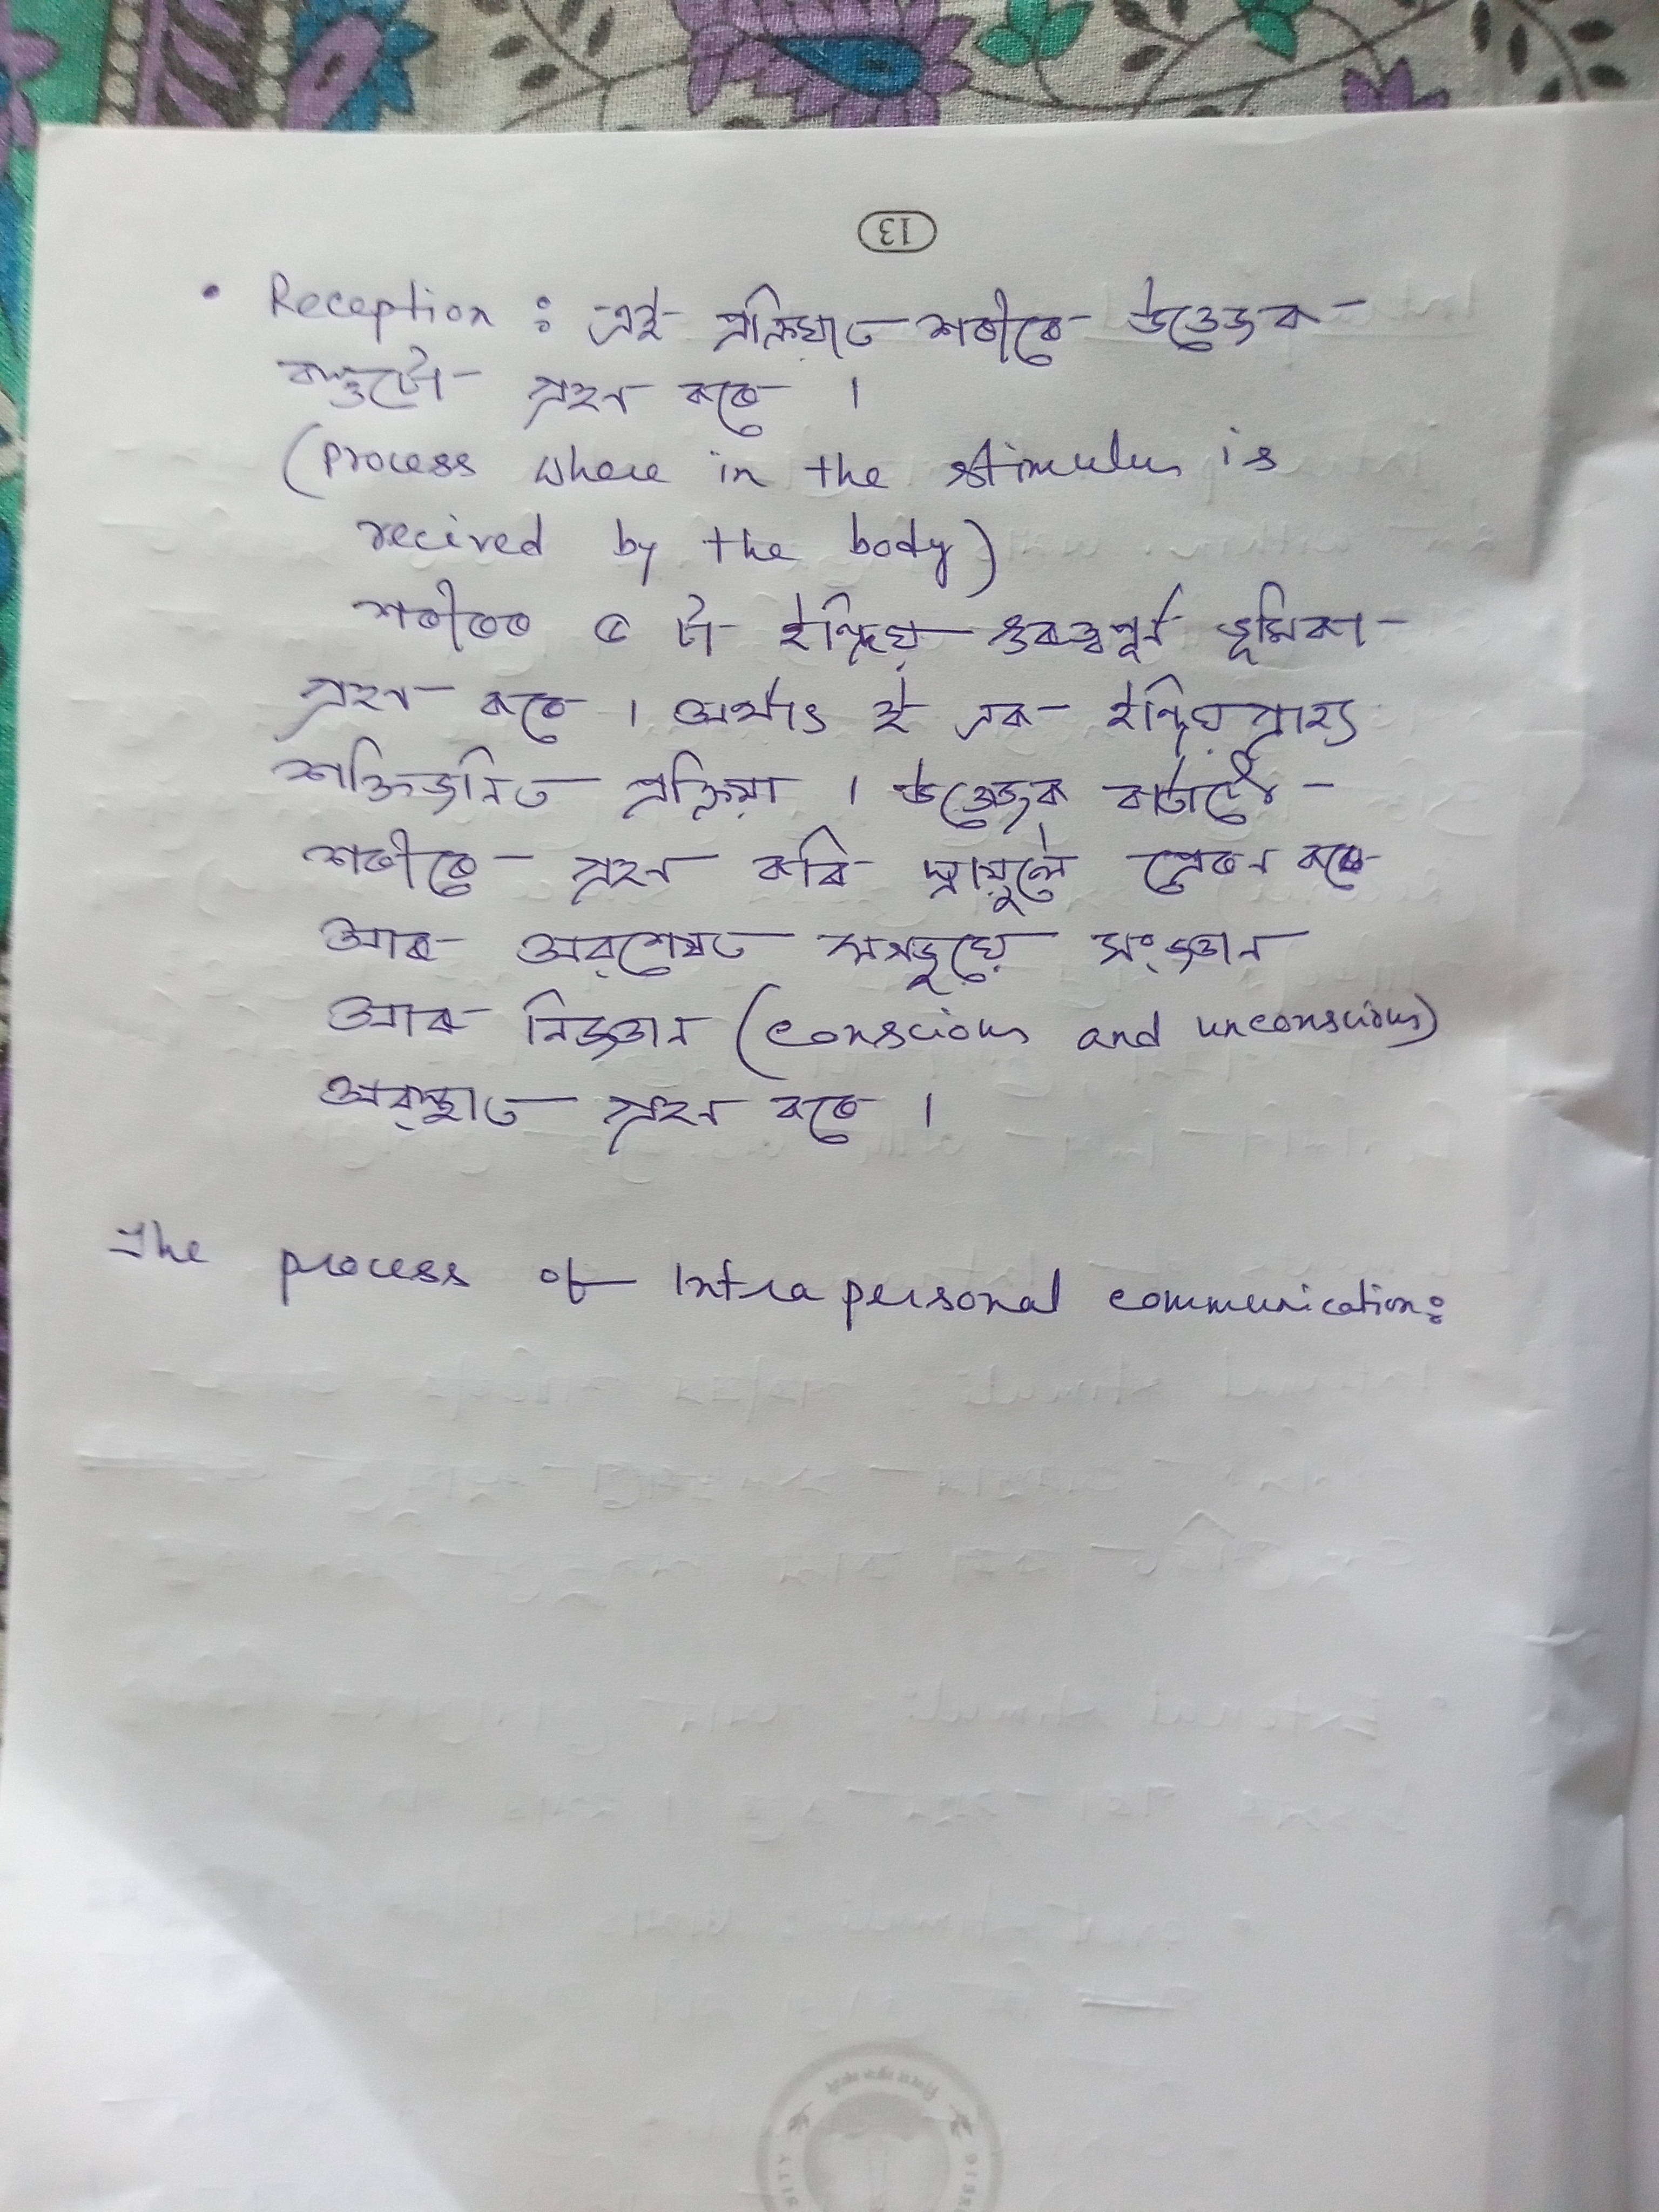 13
• Reception : এই প্ৰক্ৰিয়াত শৰীৰে উত্তেজক
বস্তুটো গ্ৰহন কৰে ।
(process where in the stimulus is
recived by the body)
শৰীৰৰ ৫ টা ইন্দ্ৰিয় গুৰুত্বপূৰ্ন ভূমিকা
গ্ৰহন কৰে । অৰ্থাৎ ই এক ইন্দ্ৰিয়গ্ৰাহ্য
শক্তিজনিত প্ৰক্ৰিয়া । উত্তেজক
শৰীৰে গ্ৰহন কৰি স্নায়ুলৈ প্ৰেৰন কৰে
আৰু অৱশেষত মগজুয়ে সংজ্ঞান
আৰু নিৰ্জ্ঞান (conscious and unconscious)
অৱস্থাত গ্ৰহন কৰে ।
The process of Intrapersonal communication: